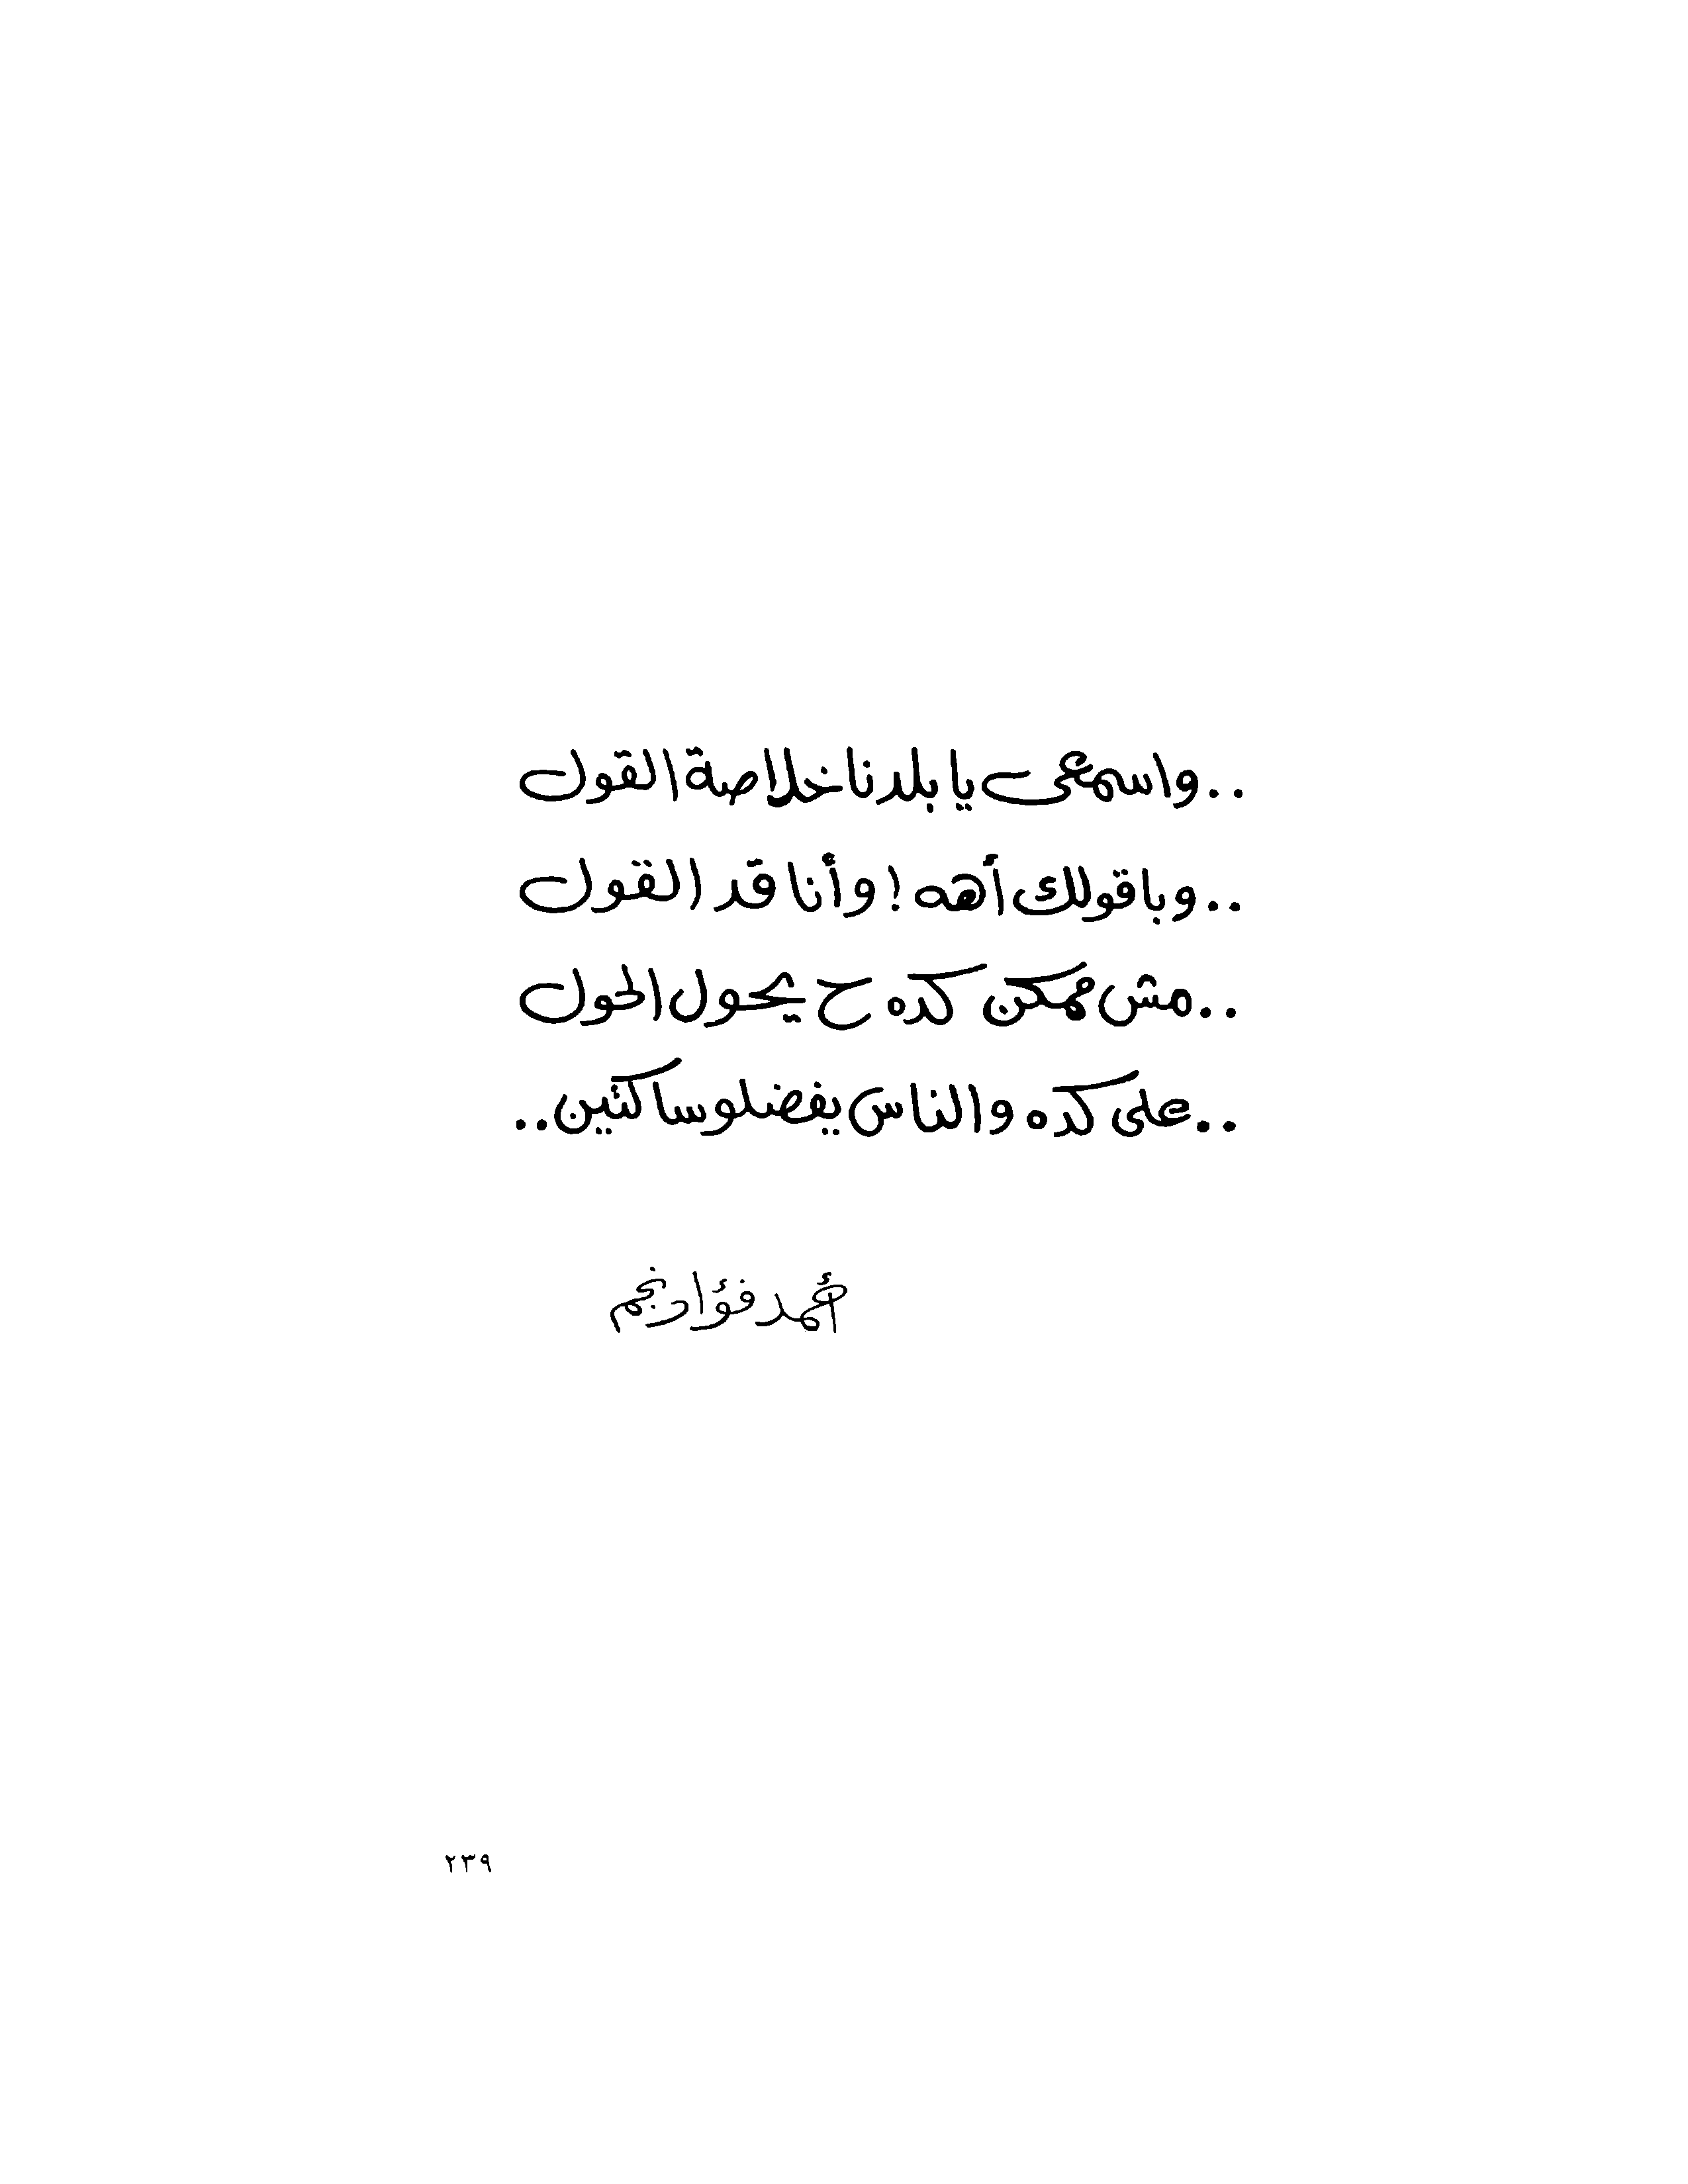 ..واسمعى يا بلدنا خلاصة القول
..وباقولك أهه ! وأنا قد القول
..مش ممكن كده ح يحول الحول
..على كده والناس يفضلو ساكتين..
أحمد فؤاد نجم
٢٣٩